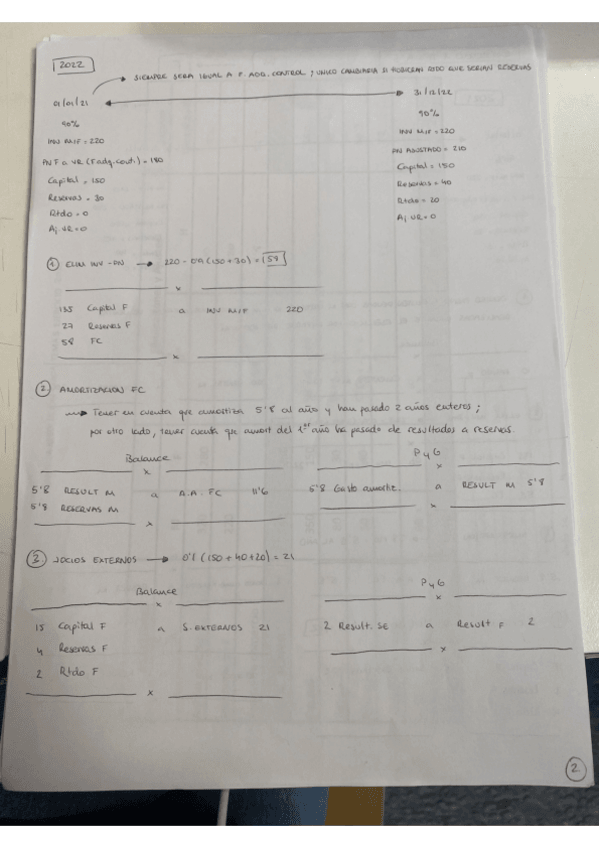 2022
SIEMPRE SERA IGUAL A F. ADQ. CONTROL ; UNICO CAMBIARIA SI HUBIERAN RTDO QUE SERIAN RESERVAS
01/01/21
90%
INV M/F = 220
PNF a VR (F.adq.cont.) = 180
Capital = 150
Reservas = 30
Rtdo = 0
Aj. VR = 0
31/12/22
90%
INV M/F = 220
PN AJUSTADO = 210
Capital = 150
Reservas = 40
Rtdo = 20
Aj. VR = 0
1 ELIM INV - PN → 220 - 0'9 (150 + 30) = 58
x
135 Capital F a INV M/F 220
27 Reservas F
58 FC
x
2 AMORTIZACION FC
Tener en cuenta que amortiza 5'8 al año y han pasado 2 años enteros ;
por otro lado, tener cuenta que amort del 1er año ha pasado de resultados a reservas.
Balance
x
5'8 RESULT M a A.A. FC 11'6
5'8 RESERVAS M
x
P y G
x
5'8 Gasto amortiz. a RESULT M 5'8
x
3 SOCIOS EXTERNOS → 0'1 (150 + 40 + 20) = 21
Balance
x
15 Capital F a S. EXTERNOS 21
4 Reservas F
2 Rtdo F
x
P y G
x
2 Result. SE a Result F 2
x
2